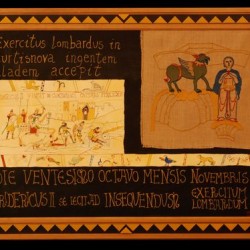 Exercitus lombardus in
urtisnova ingentem
ladem accepit
DIE VENTESIMO OCTAVO MENSIS NOVEMBRIS
RIDERICUS II SE LEGIAD INSEQUENDUM EXERCITUM
LOMBARDUM